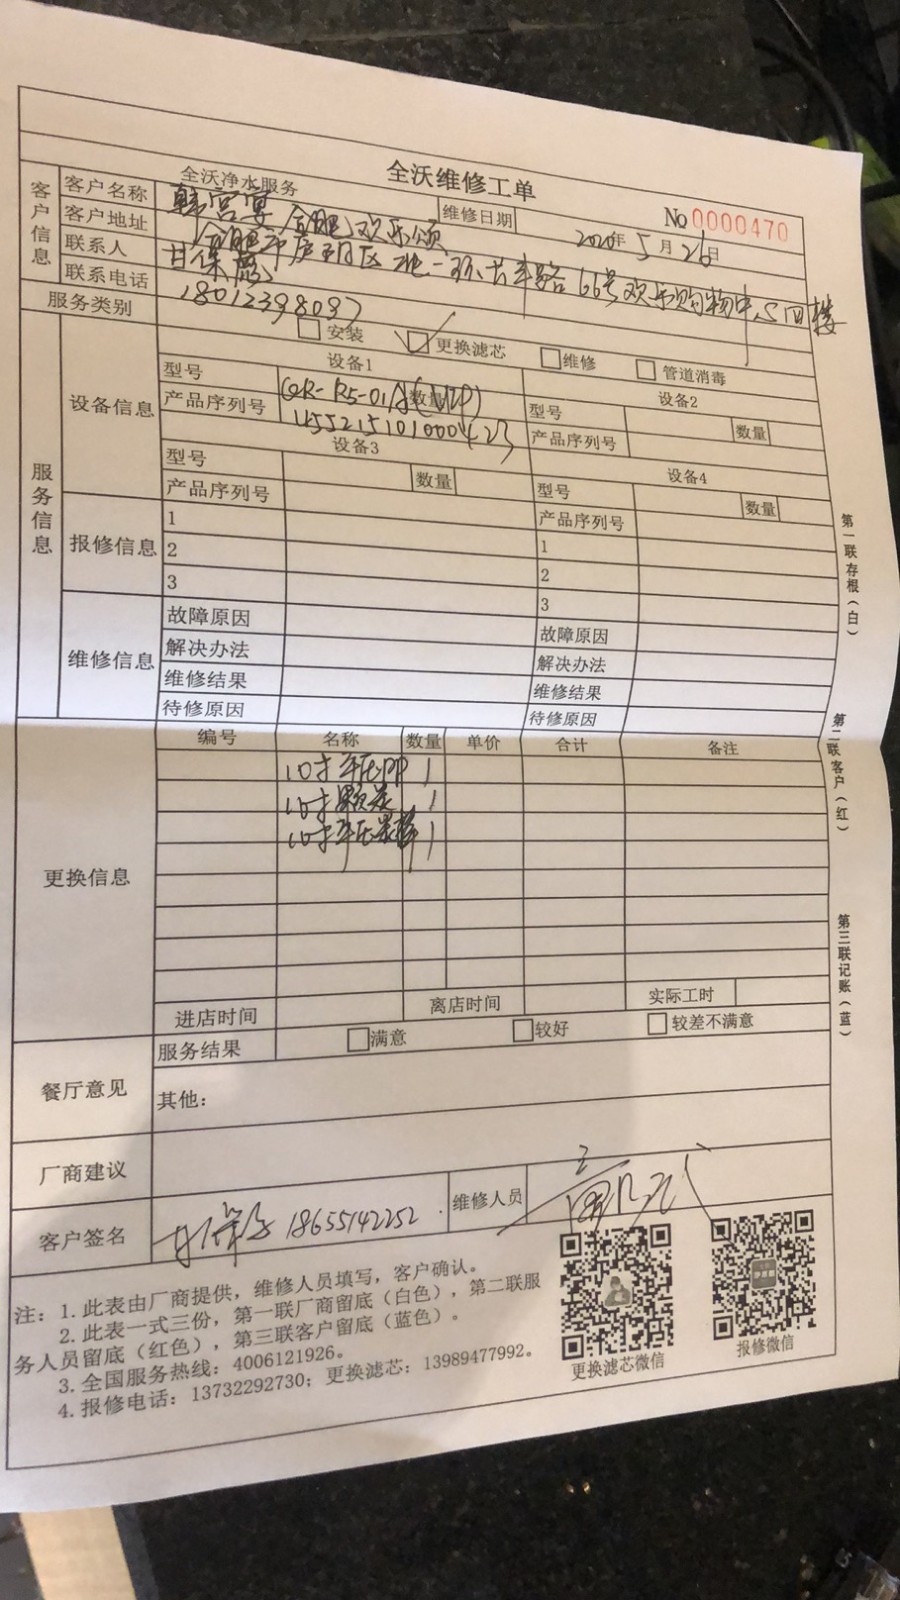 全沃净水服务
全沃维修工单
No 0000470
客户信息
客户名称 韩宫宴 合肥 欢乐颂
维修日期 2020年5月26日
客户地址 合肥市庐阳区北一环 66号欢乐购物中心四楼
联系人 甘保
联系电话 18012398037
服务类别 安装 更换滤芯 维修 管道消毒
服务信息
设备信息
设备1 设备2
型号 QR-R5-01A 数量 型号 数量
产品序列号 产品序列号
设备3 设备4
型号 数量 型号 数量
产品序列号 产品序列号
报修信息
1 1
2 2
3 3
维修信息
故障原因 故障原因
解决办法 解决办法
维修结果 维修结果
待修原因 待修原因
更换信息
编号 名称 数量 单价 合计 备注
10寸平压PP 1
10寸颗炭 1
10寸平压 1
进店时间 离店时间 实际工时
餐厅意见
服务结果 满意 较好 较差不满意
其他：
厂商建议
客户签名 18655142252
维修人员
注：1. 此表由厂商提供，维修人员填写，客户确认。
2. 此表一式三份，第一联厂商留底（白色），第二联服
务人员留底（红色），第三联客户留底（蓝色）。
3. 全国服务热线：4006121926。
4. 报修电话：13732292730；更换滤芯：13989477992。
更换滤芯微信
报修微信
第一联存根（白）
第二联客户（红）
第三联记账（蓝）